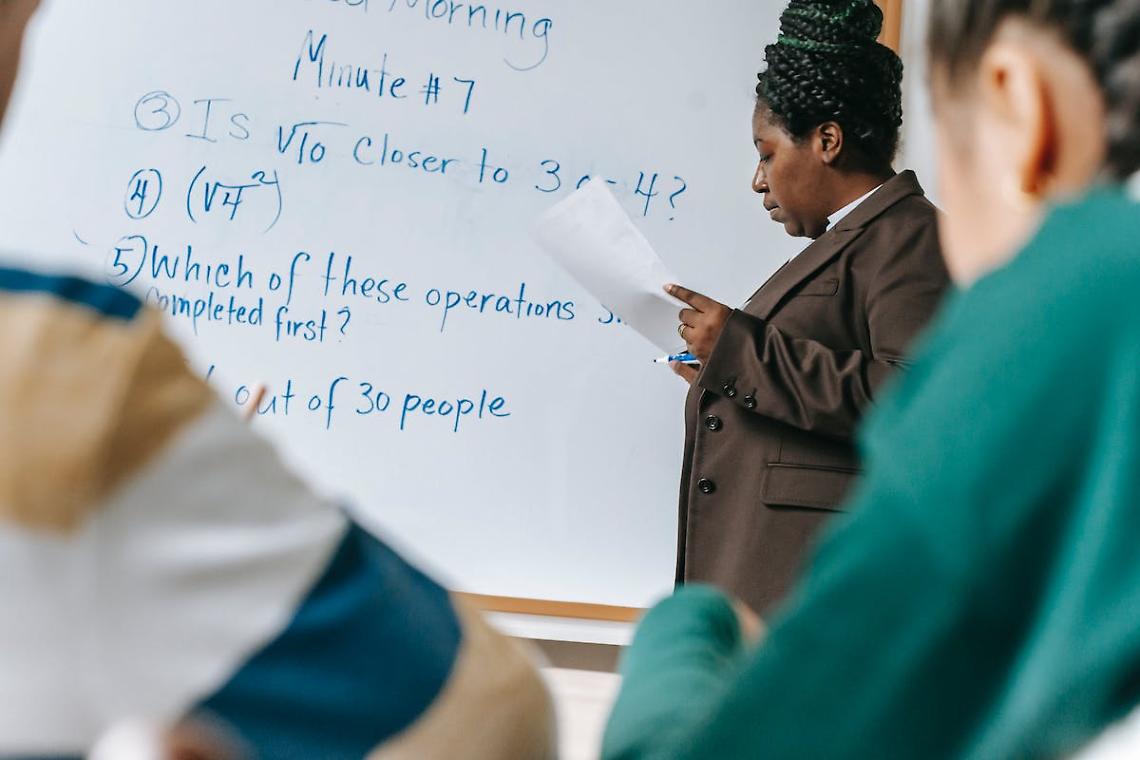 Morning
Minute #7
③ Is √10 Closer to 3 or 4?
④ (√4²)
⑤ Which of these operations
completed first?
out of 30 people